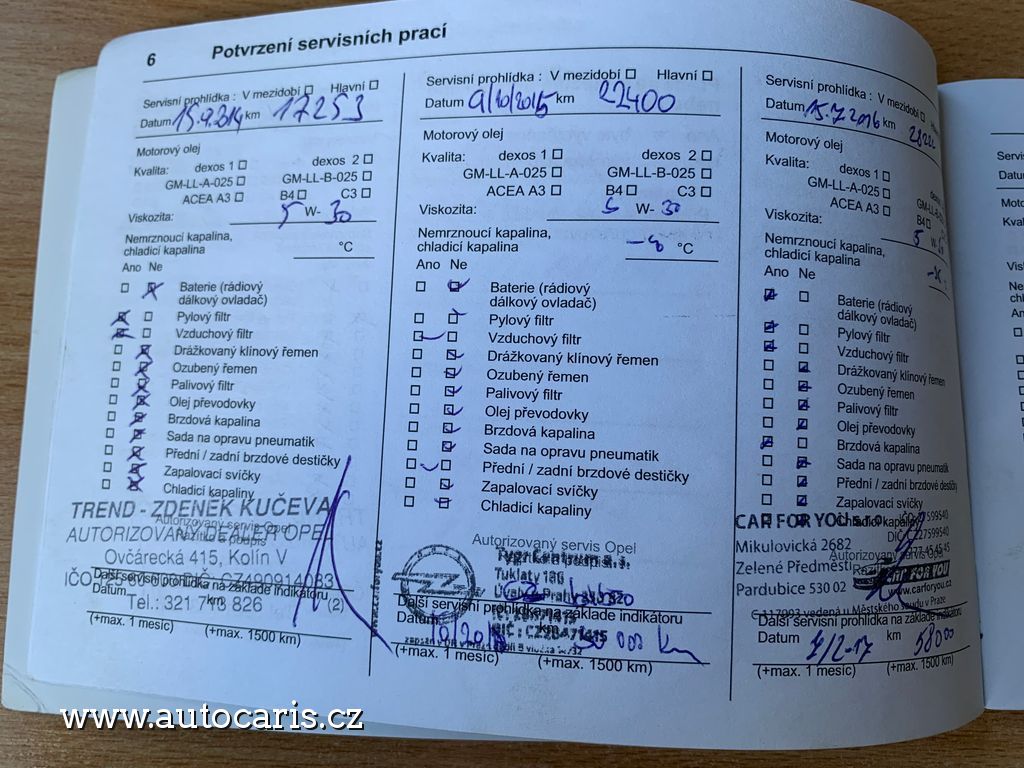 6 Potvrzení servisních prací
Servisní prohlídka : V mezidobí Hlavní
Datum 15.9.2014 km 17253
Motorový olej
Kvalita: dexos 1 dexos 2
GM-LL-A-025 GM-LL-B-025
ACEA A3 B4 C3
Viskozita: 5 W- 30
Nemrznoucí kapalina,
chladicí kapalina °C
Ano Ne
Baterie (rádiový
dálkový ovladač)
Pylový filtr
Vzduchový filtr
Drážkovaný klínový řemen
Ozubený řemen
Palivový filtr
Olej převodovky
Brzdová kapalina
Sada na opravu pneumatik
Přední / zadní brzdové destičky
Zapalovací svíčky
Chladicí kapaliny
TREND - ZDENĚK KUČEVA
Autorizovaný servis Opel
AUTORIZOVANÝ DEALER OPEL
Razítko a podpis
Ovčárecká 415, Kolín V
Další servisní prohlídka na základě indikátoru
Datum km (2)
Tel.: 321 713 826
(+max. 1 měsíc) (+max. 1500 km)
Servisní prohlídka : V mezidobí Hlavní
Datum 9/10/2015 km 22400
Motorový olej
Kvalita: dexos 1 dexos 2
GM-LL-A-025 GM-LL-B-025
ACEA A3 B4 C3
Viskozita: 5 W- 30
Nemrznoucí kapalina,
chladicí kapalina °C
Ano Ne
Baterie (rádiový
dálkový ovladač)
Pylový filtr
Vzduchový filtr
Drážkovaný klínový řemen
Ozubený řemen
Palivový filtr
Olej převodovky
Brzdová kapalina
Sada na opravu pneumatik
Přední / zadní brzdové destičky
Zapalovací svíčky
Chladicí kapaliny
Autorizovaný servis Opel
Tuklaty
Další servisní prohlídka na základě indikátoru
(+max. 1 měsíc) (+max. 1500 km)
Servisní prohlídka : V mezidobí
Datum 15.7.2016 km
Motorový olej
Kvalita: dexos 1
GM-LL-A-025
ACEA A3 B4
Viskozita: 5 W-
Nemrznoucí kapalina,
chladicí kapalina
Ano Ne
Baterie (rádiový
dálkový ovladač)
Pylový filtr
Vzduchový filtr
Drážkovaný klínový řemen
Ozubený řemen
Palivový filtr
Olej převodovky
Brzdová kapalina
Sada na opravu pneumatik
Přední / zadní brzdové destičky
Zapalovací svíčky
Chladicí kapaliny
CAR FOR YOU s.r.o.
Mikulovická 2682
Autorizovaný servis
Zelené Předměstí
CAR FOR YOU
Pardubice 530 02 www.carforyou.cz
C 117993 vedená u Městského soudu v Praze
Další servisní prohlídka na základě indikátoru
Datum 7/2-17 km 58000
(+max. 1 měsíc) (+max. 1500 km)
www.autocaris.cz